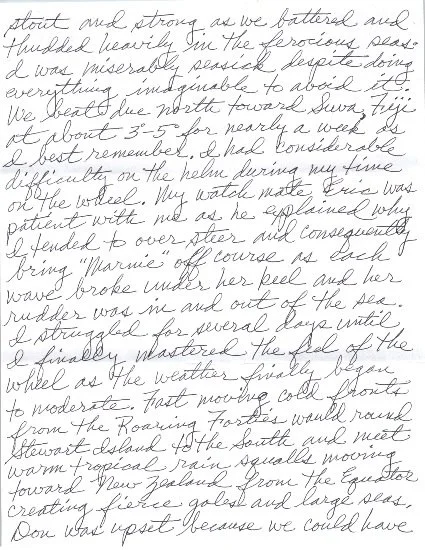 stout and strong as we battered and
thudded heavily in the ferocious seas.
I was miserably seasick despite doing
everything imaginable to aboid it.
We beat due north toward Suva, Fiji
at about 3-5° for nearly a week as
I best remember. I had considerable
difficulty on the helm during my time
on the wheel. My watch mate Eric was
patient with me as he explained why
I tended to over steer and consequently
bring "Marnie" off course as each
wave broke under her keel and her
rudder was in and out of the sea.
I struggled for several days until
I finally mastered the feel of the
wheel as the weather finally began
to moderate. Fast moving cold fronts
from the Roaring Forties would round
Stewart Island to the South and meet
warm tropical rain squalls moving
toward New Zealand from the Equator
creating fierce gales and large seas.
Don was upset because we could have